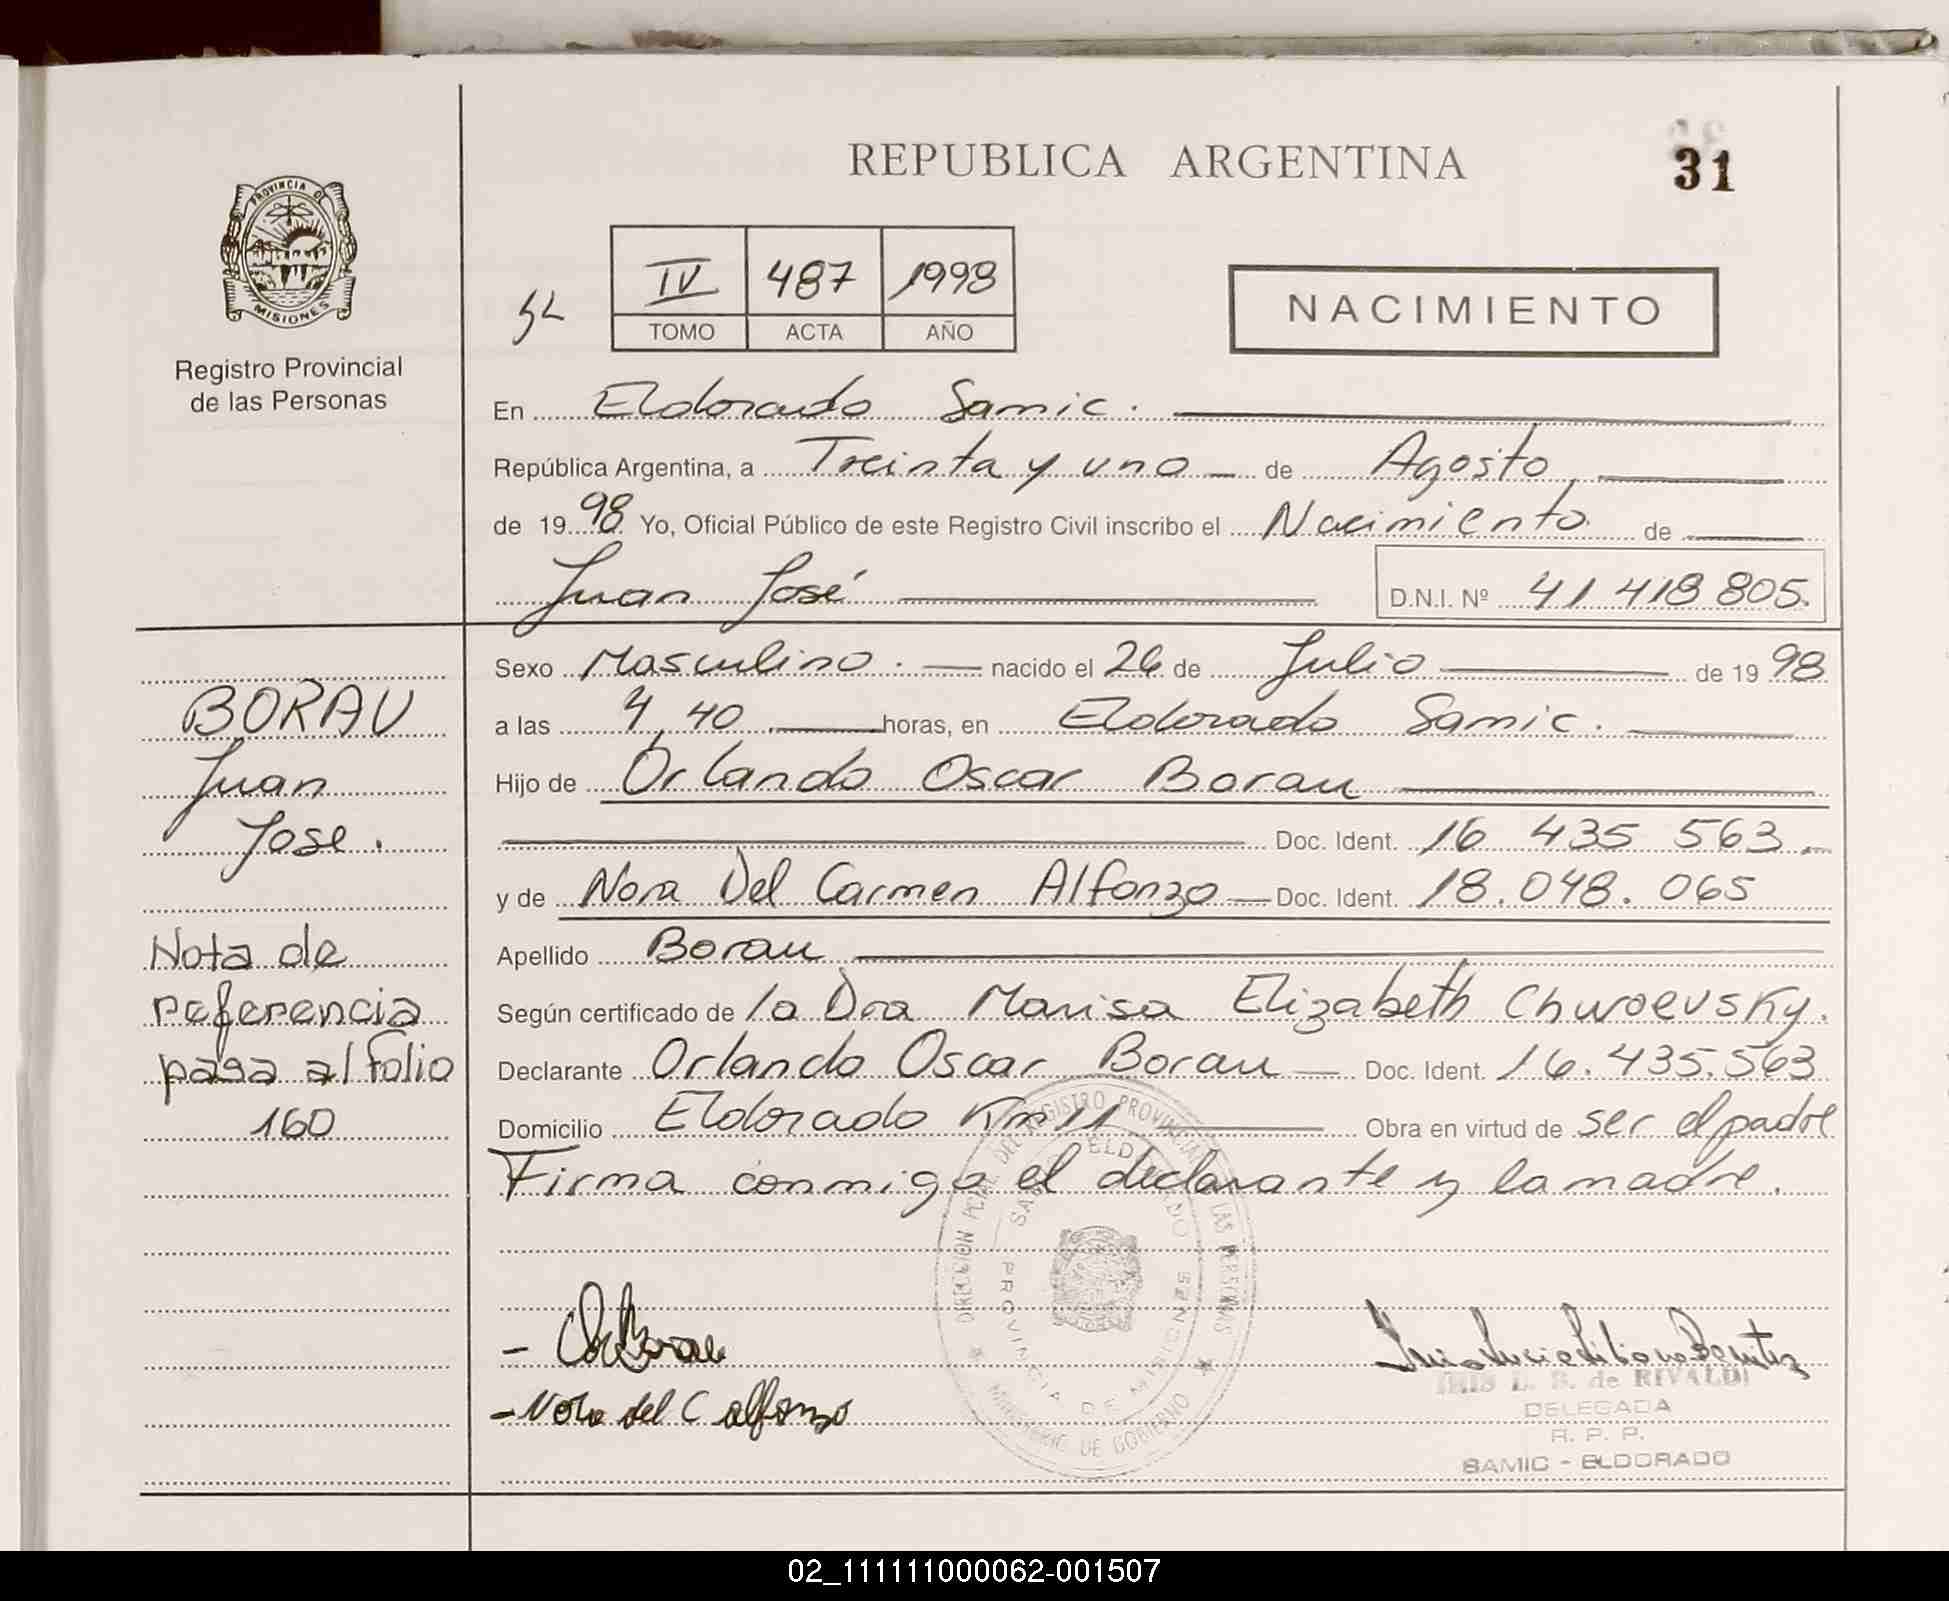 REPUBLICA ARGENTINA
31
PROVINCIA DE
MISIONES
Registro Provincial
de las Personas
IV 487 1998
TOMO ACTA AÑO
NACIMIENTO
En Eldorado Samic.
República Argentina, a Treinta y uno de Agosto
de 1998 Yo, Oficial Público de este Registro Civil inscribo el Nacimiento de
Juan José D.N.I. Nº 41 418 805.
Sexo Masculino. nacido el 26 de Julio de 1998
a las 4,40 horas, en Eldorado Samic.
Hijo de Orlando Oscar Borau
Doc. Ident. 16 435 563.
y de Nora Del Carmen Alfonzo Doc. Ident. 18.048.065
Apellido Borau
Según certificado de la Dra Marisa Elizabeth Chwoevsky.
Declarante Orlando Oscar Borau Doc. Ident. 16.435.563
Domicilio Eldorado Km 11 Obra en virtud de ser el padre
Firma conmigo el declarante y la madre.
BORAU
Juan
Jose.
Nota de
referencia
pasa al folio
160
- Nora del C alfonzo
IRIS L. B. de RIVALDI
DELEGADA
R. P. P.
SAMIC - ELDORADO
PROVINCIA DE MISIONES
MINISTERIO DE GOBIERNO
02_111111000062-001507